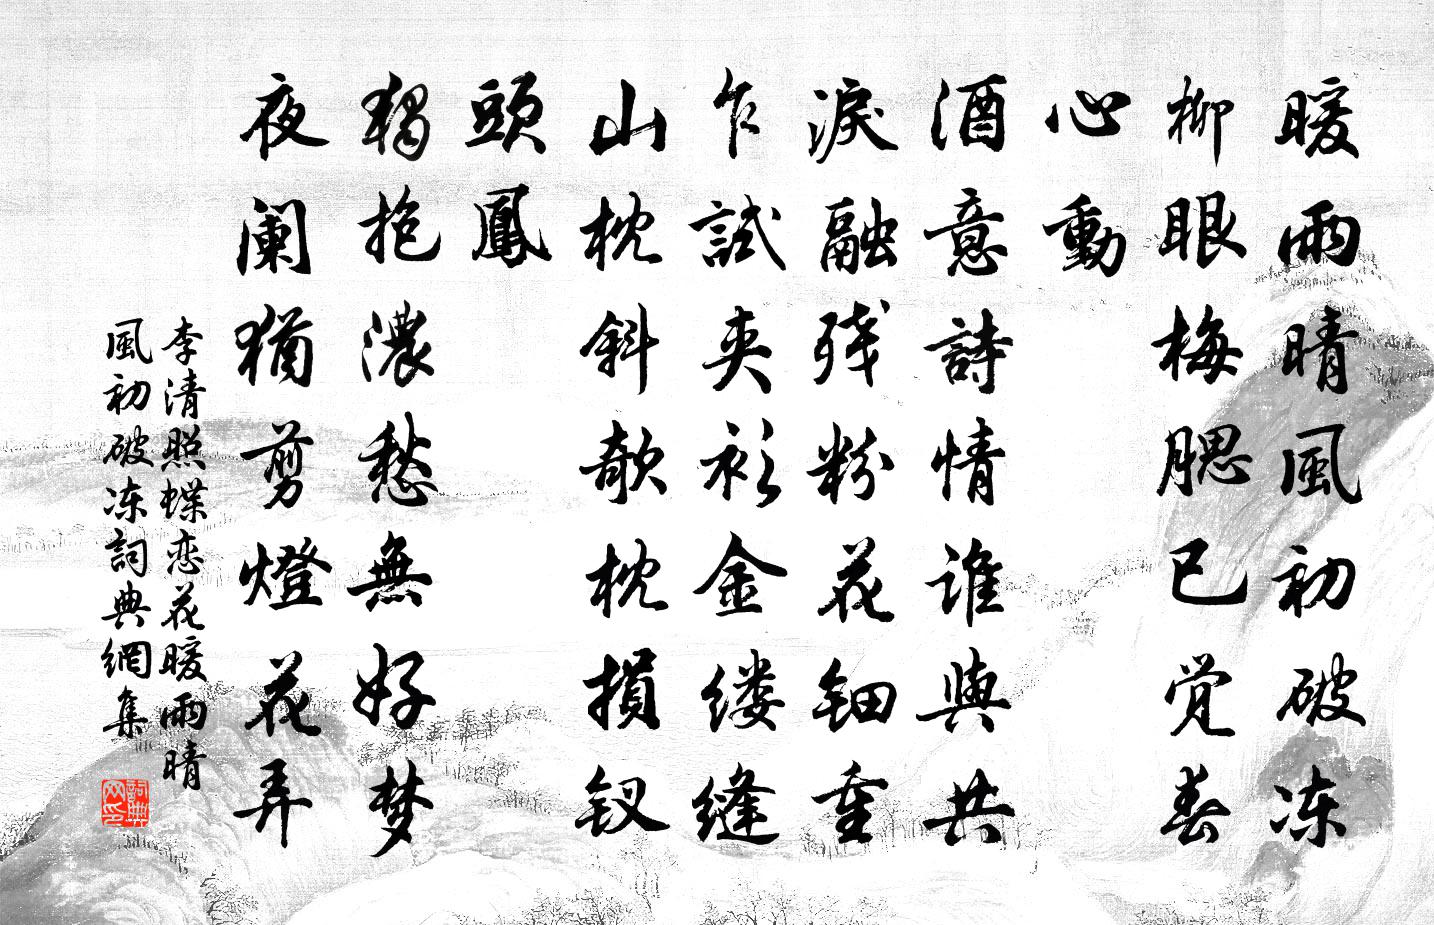 暖雨晴風初破冻
柳眼梅腮已觉春
心動
酒意詩情谁與共
淚融残粉花钿重
乍試夹衫金缕縫
山枕斜欹枕損钗
頭鳳
獨抱濃愁無好梦
夜阑猶剪燈花弄
李清照蝶恋花暖雨晴
風初破冻詞典網集
詞典网印